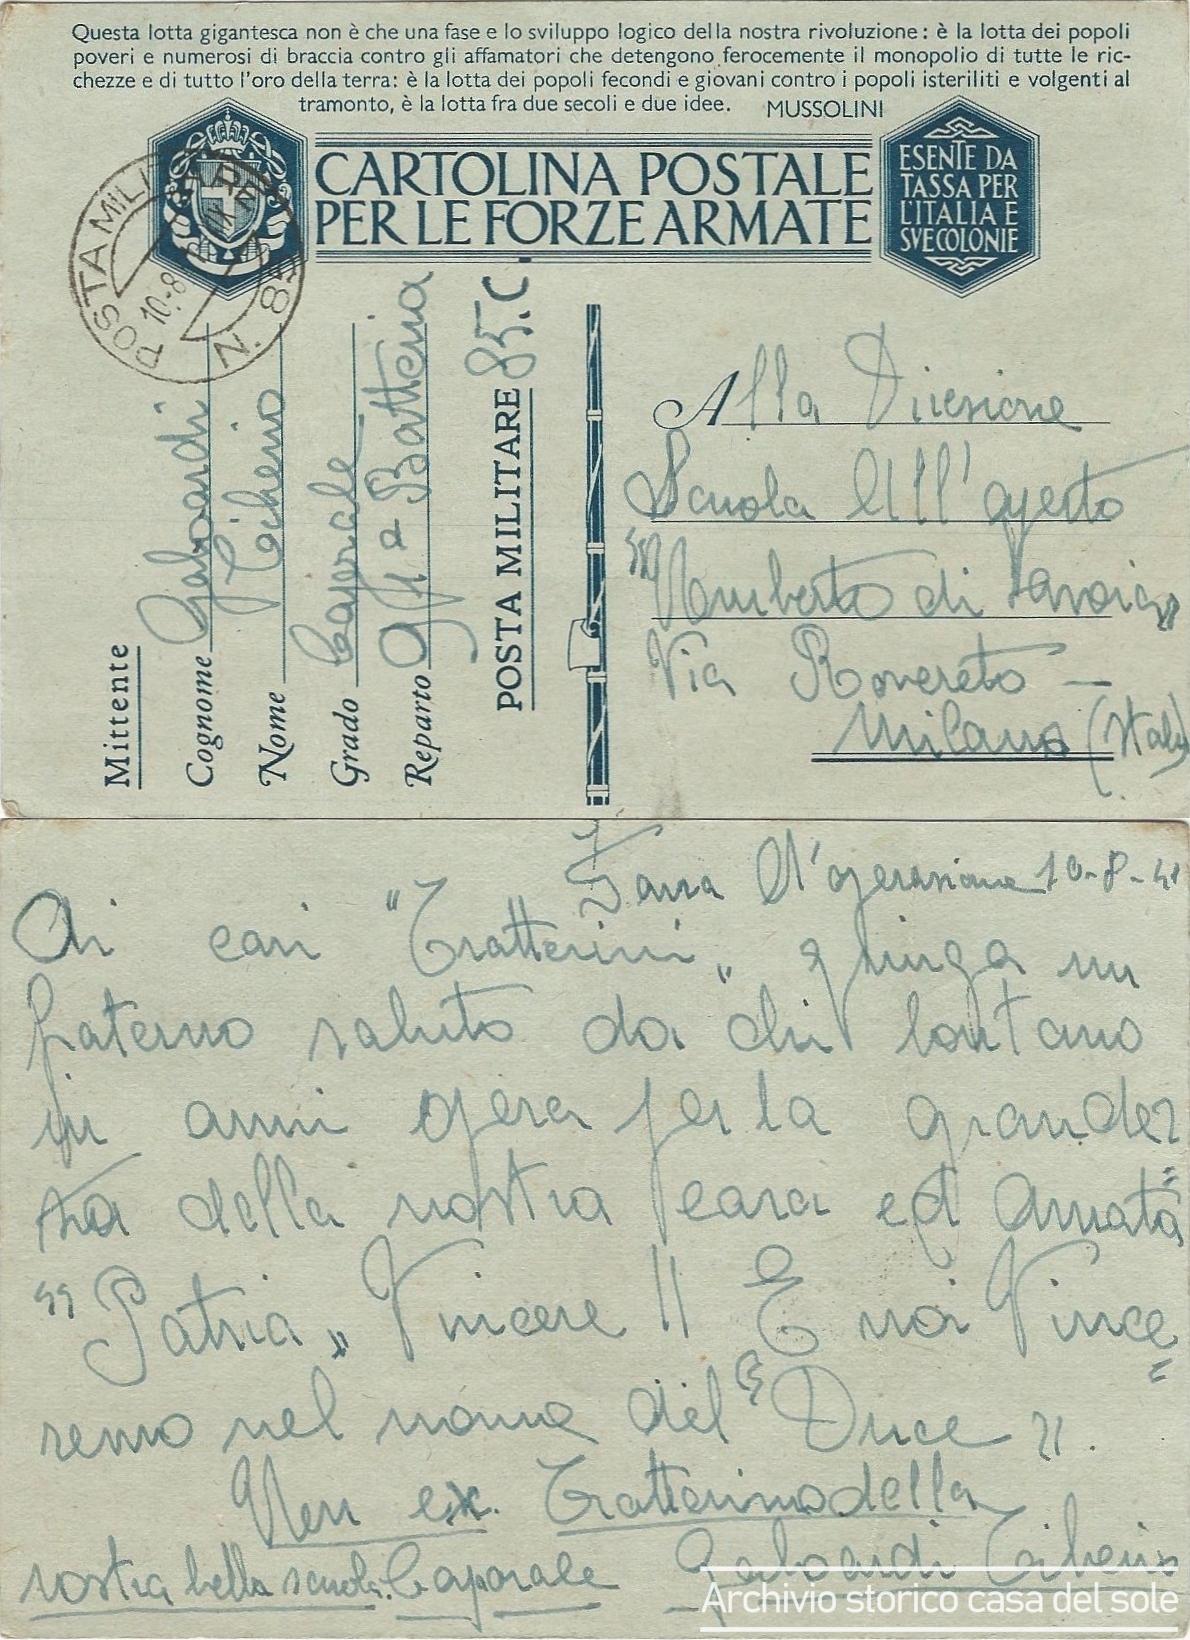 Questa lotta gigantesca non è che una fase e lo sviluppo logico della nostra rivoluzione: è la lotta dei popoli
poveri e numerosi di braccia contro gli affamatori che detengono ferocemente il monopolio di tutte le ric-
chezze e di tutto l'oro della terra: è la lotta dei popoli fecondi e giovani contro i popoli isteriliti e volgenti al
tramonto, è la lotta fra due secoli e due idee. MUSSOLINI
CARTOLINA POSTALE
PER LE FORZE ARMATE
ESENTE DA
TASSA PER
L'ITALIA E
SVE COLONIE
POSTA MILITARE N. 85
10.8 XIX
Mittente
Cognome Gaboardi
Nome Tiberio
Grado Caporale
Reparto Batteria
POSTA MILITARE 85.C.
Alla Direzione
Scuola All'aperto
"Umberto di Savoia"
Via Rovereto —
Milano (Italy)
Zona d'operazione 10-8-41
Ai cari "Trotterini" giunga un
fraterno saluto da chi lontano
in armi opera per la grandez
za della nostra cara ed Amata
"Patria" Vincere!! E noi Vince
remo nel nome del "Duce".
Un ex. Trotterino della
vostra bella scuola. Caporale Gaboardi Tiberio
Archivio storico casa del sole